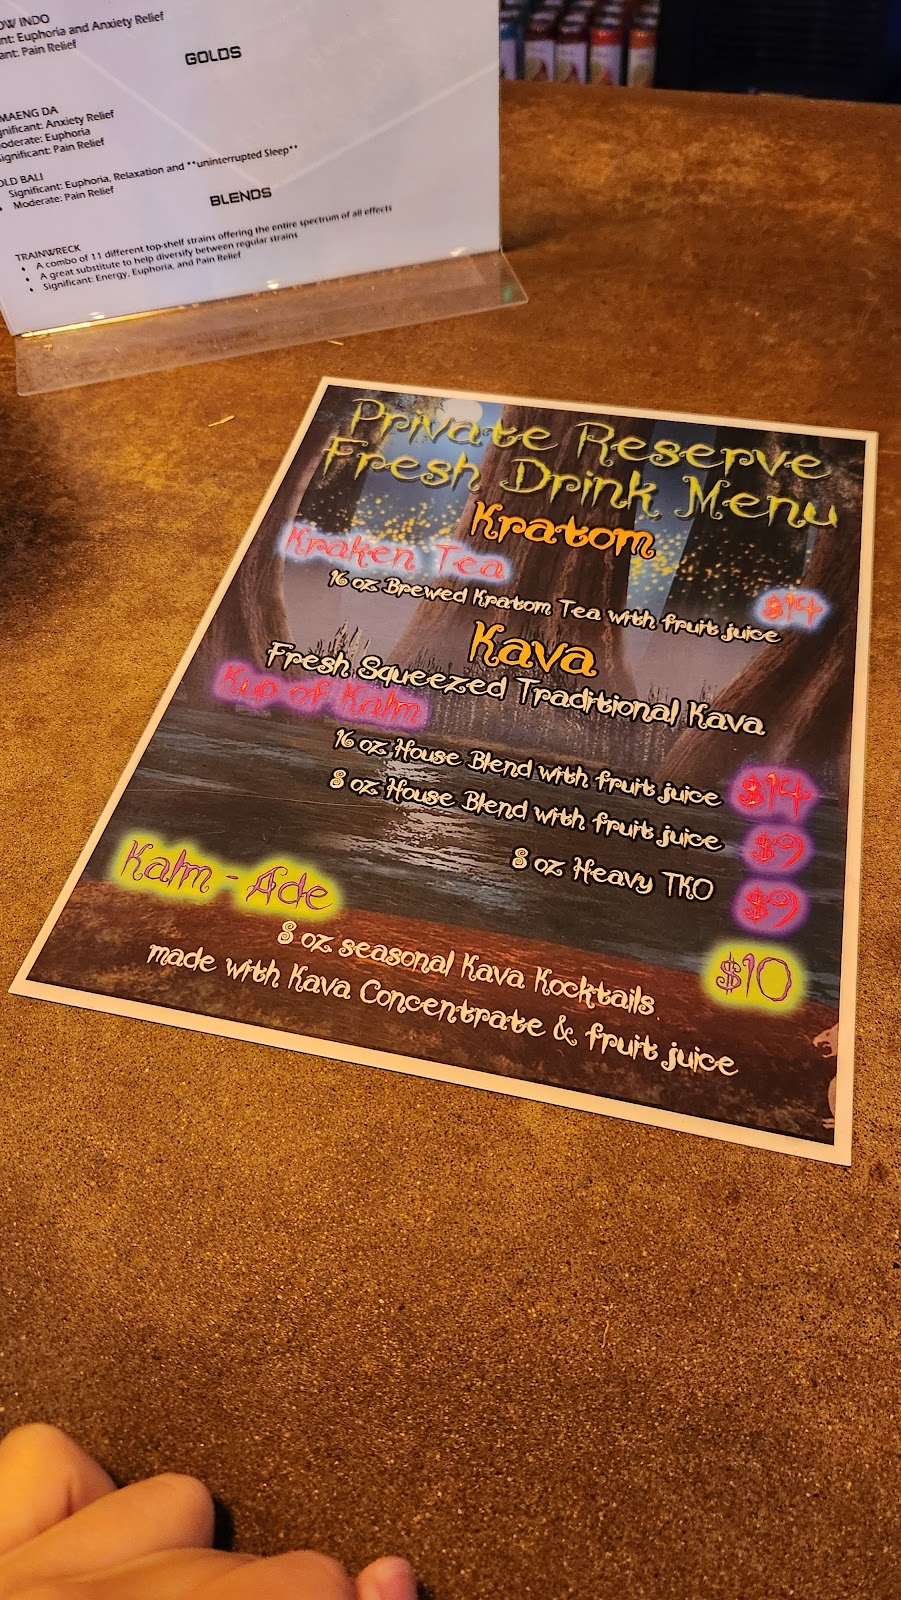 OW INDO
nt: Euphoria and Anxiety Relief
ant: Pain Relief
GOLDS
MAENG DA
gnificant: Anxiety Relief
oderate: Euphoria
Significant: Pain Relief
OLD BALI
Significant: Euphoria, Relaxation and **uninterrupted Sleep**
• Moderate: Pain Relief
BLENDS
TRAINWRECK
• A combo of 11 different top-shelf strains offering the entire spectrum of all effects
• A great substitute to help diversify between regular strains
• Significant: Energy, Euphoria, and Pain Relief
Private Reserve
Fresh Drink Menu
Kratom
Kraken Tea $14
16 oz Brewed Kratom Tea with fruit juice
Kava
Fresh Squeezed Traditional Kava
Kup of Kalm
16 oz House Blend with fruit juice $14
8 oz House Blend with fruit juice $9
8 oz Heavy TKO $9
Kalm - Ade $10
8 oz seasonal Kava Kocktails
made with Kava Concentrate & fruit juice